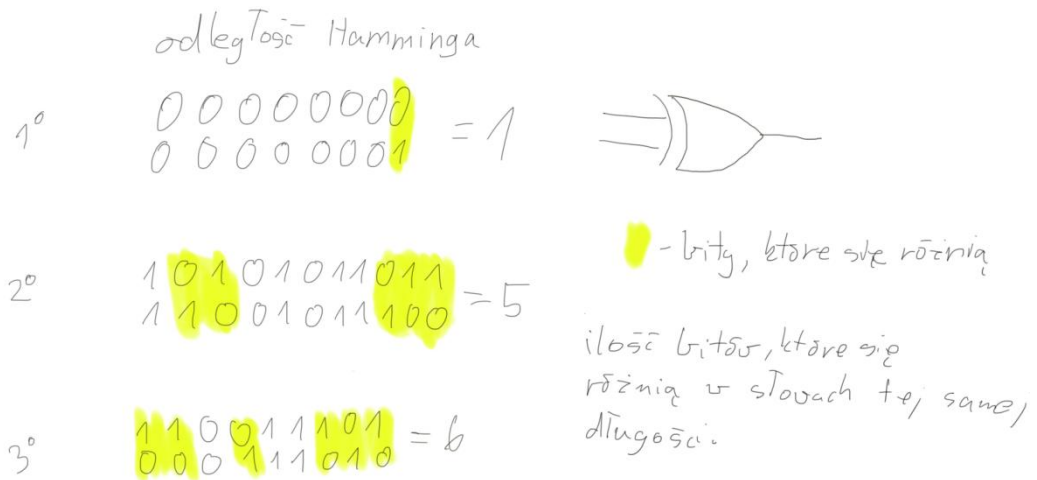 odległość Hamminga
1° 0 0 0 0 0 0 0 0 = 1
0 0 0 0 0 0 0 1
2° 1 0 1 0 1 0 1 1 0 1 1 = 5
1 1 0 0 1 0 1 1 1 0 0
3° 1 1 0 0 1 1 1 0 1 = 6
0 0 0 1 1 1 0 1 0
- bity, które się różnią
ilość bitów, które się
różnią w słowach tej samej
długości.